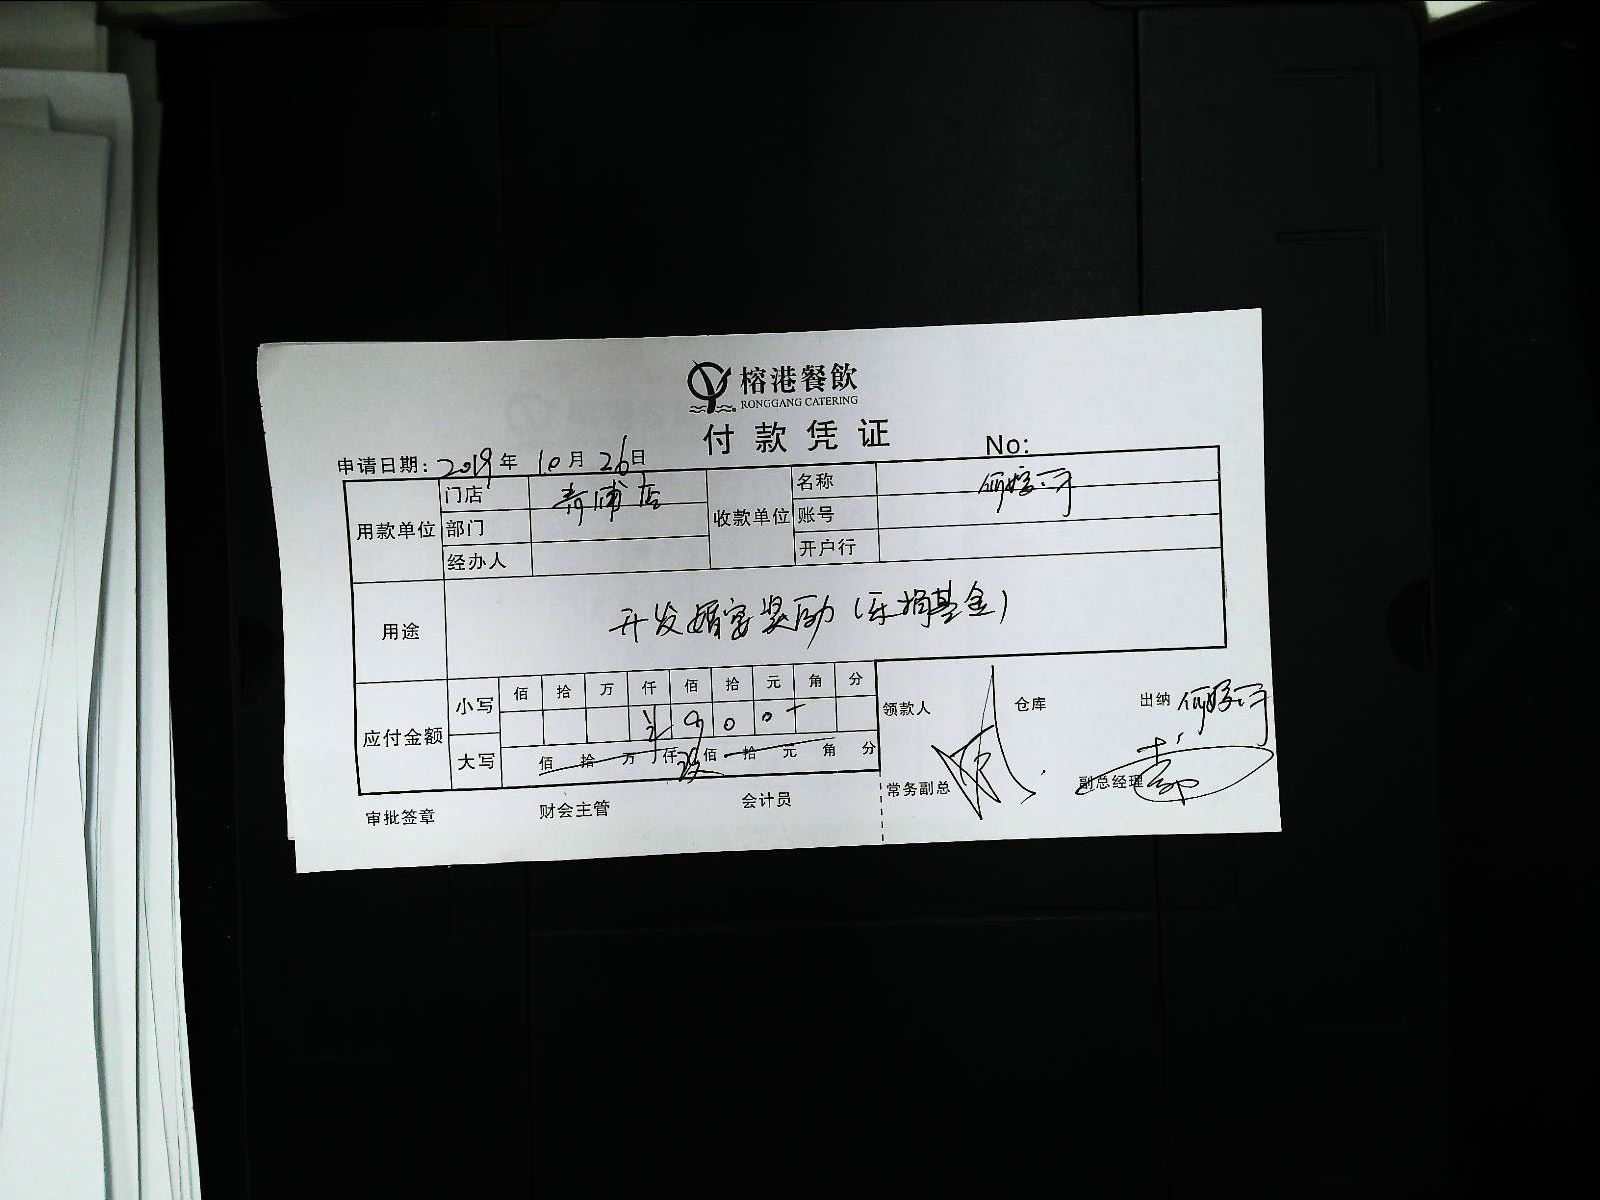 榕港餐飲
RONGGANG CATERING
付款凭证
申请日期: 2019 年 10 月 26 日 No:
用款单位 门店 青浦店 收款单位 名称
部门 账号
经办人 开户行
用途 开发婚宴奖励(乐捐基金)
应付金额 小写 佰 拾 万 仟 佰 拾 元 角 分
¥ 9 0 0 -
大写 佰 拾 万 仟 佰 拾 元 角 分
领款人 仓库 出纳
常务副总 副总经理
审批签章 财会主管 会计员